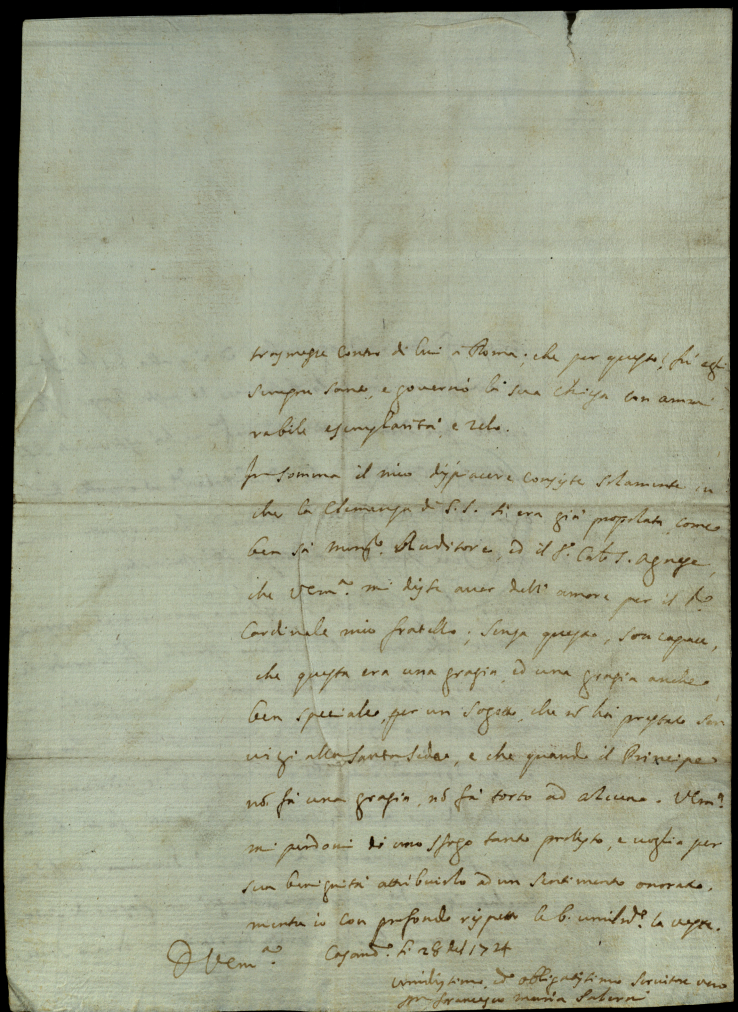 trasmesse contro di lui à Roma; che per questo fù egli
sempre sano, e governò la sua Chiesa con ammi
rabile esemplarità e zelo.
In somma il mio dispiacere consiste solamente in
che la Clemenza di S. S. si era già
ben sà Auditore, ed il S. Agnese,
che V.Em.ª mi disse aver dell' amore per il
Cardinale mio fratello; senza questo, son capace,
che questa era una grazia, ed una grazia anche
ben speciale, per un Sogetto, che nõ hà prestato ser
vizi alla Santa Sede, e che quando il Principe
nõ fà una grazia, nõ fà torto ad alcuno. V.Em.ª
mi perdoni di uno sfogo tanto prolisso, e voglia per
sua benignità attribuirlo ad un sentimento onorato,
mentre io con profondo rispetto le b. umilm.e la veste.
D V.Em.ª li 28 del 1724
umilissimo, ed obligatissimo servitore vero
Francesco Maria